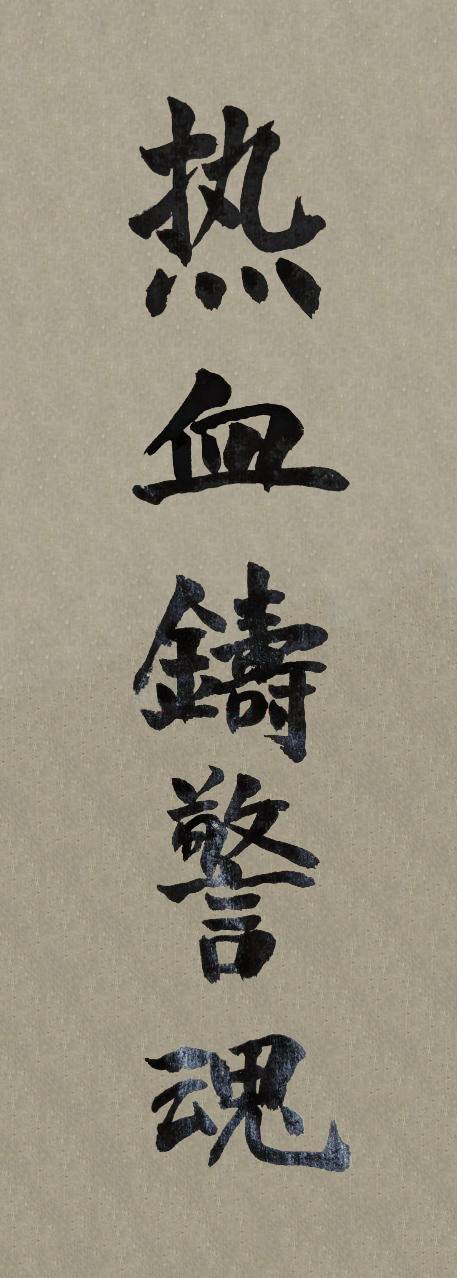 热血鑄警魂